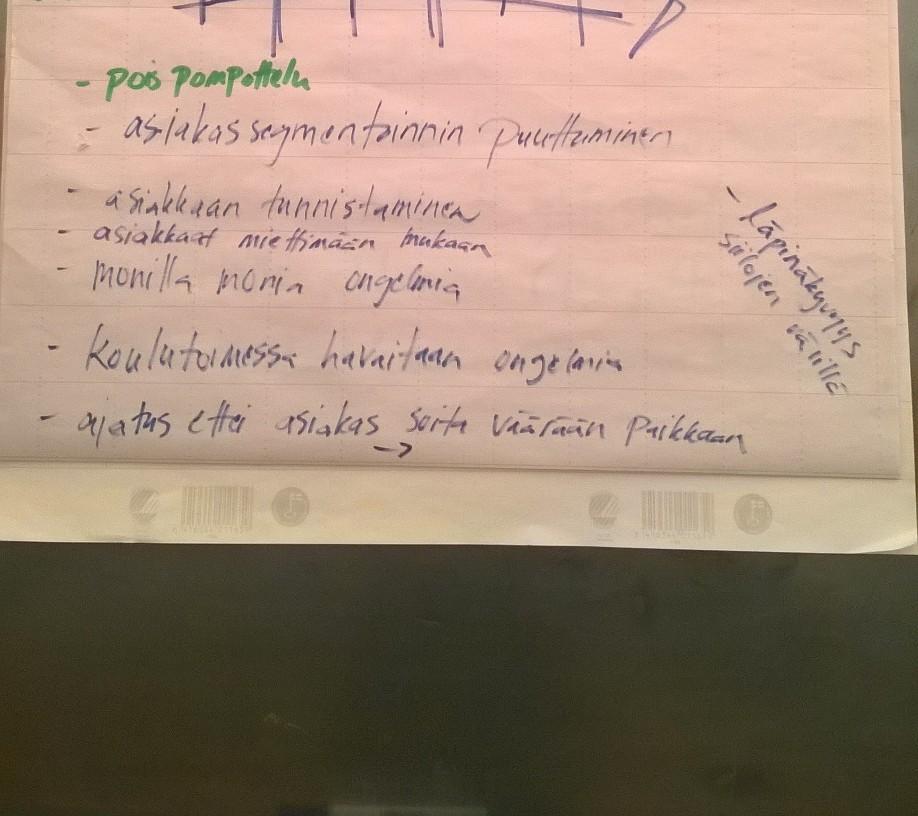 - pois pompottelu
- asiakassegmentoinnin puuttuminen
- asiakkaan tunnistaminen
- asiakkaat miettimään mukaan
- monilla monia ongelmia
- koulutoimessa havaitaan ongelmia
- ajatus ettei asiakas soita väärään paikkaan
->
- läpinäkyvyys
siilojen välillä